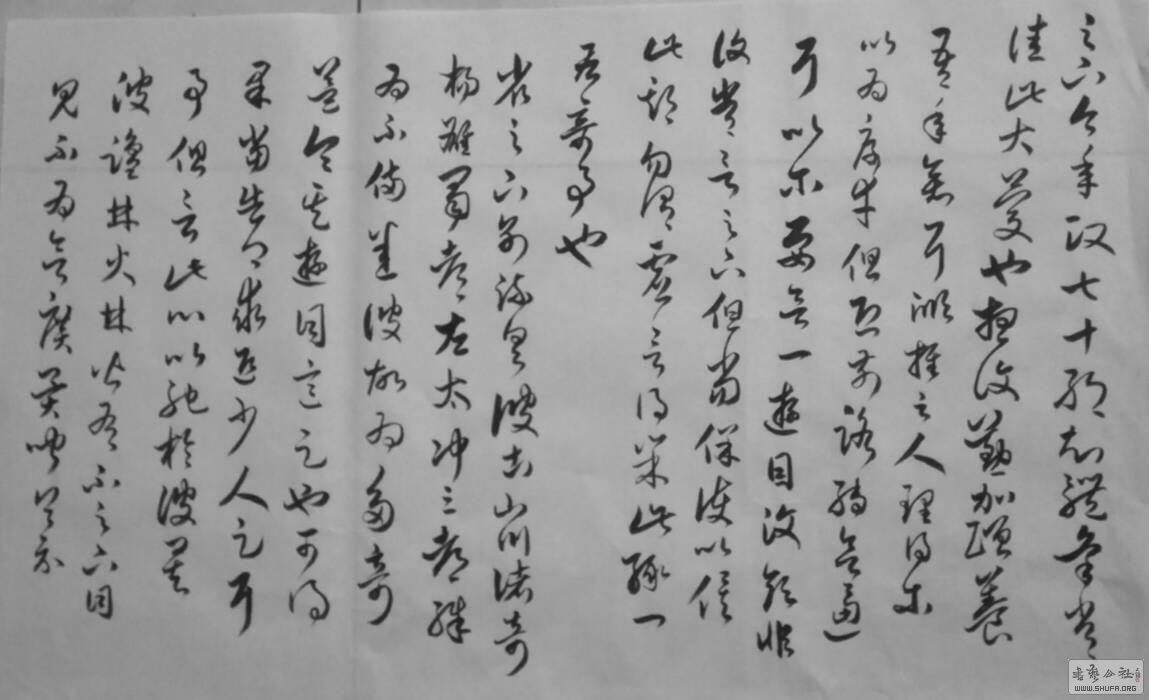 足下今年政七十耶知體氣常
佳此大慶也想復懃加頤養
吾年垂耳順推之人理得尔
以為厚幸但恐前路轉欲逼
耳以尔要欲一遊目汶領非
復常言足下但當保護以俟
此期勿謂虛言得果此緣一
段奇事也
省足下別疏具彼土山川諸奇
楊雄蜀都左太沖三都殊
為不備悉彼故為多奇
益令其遊目意足也可得
果當告卿求迎少人足耳
事但言此心以馳於彼矣
彼鹽井火井皆有不足下目
見不為欲廣異聞具示
書藝公社
WWW.SHUFA.ORG